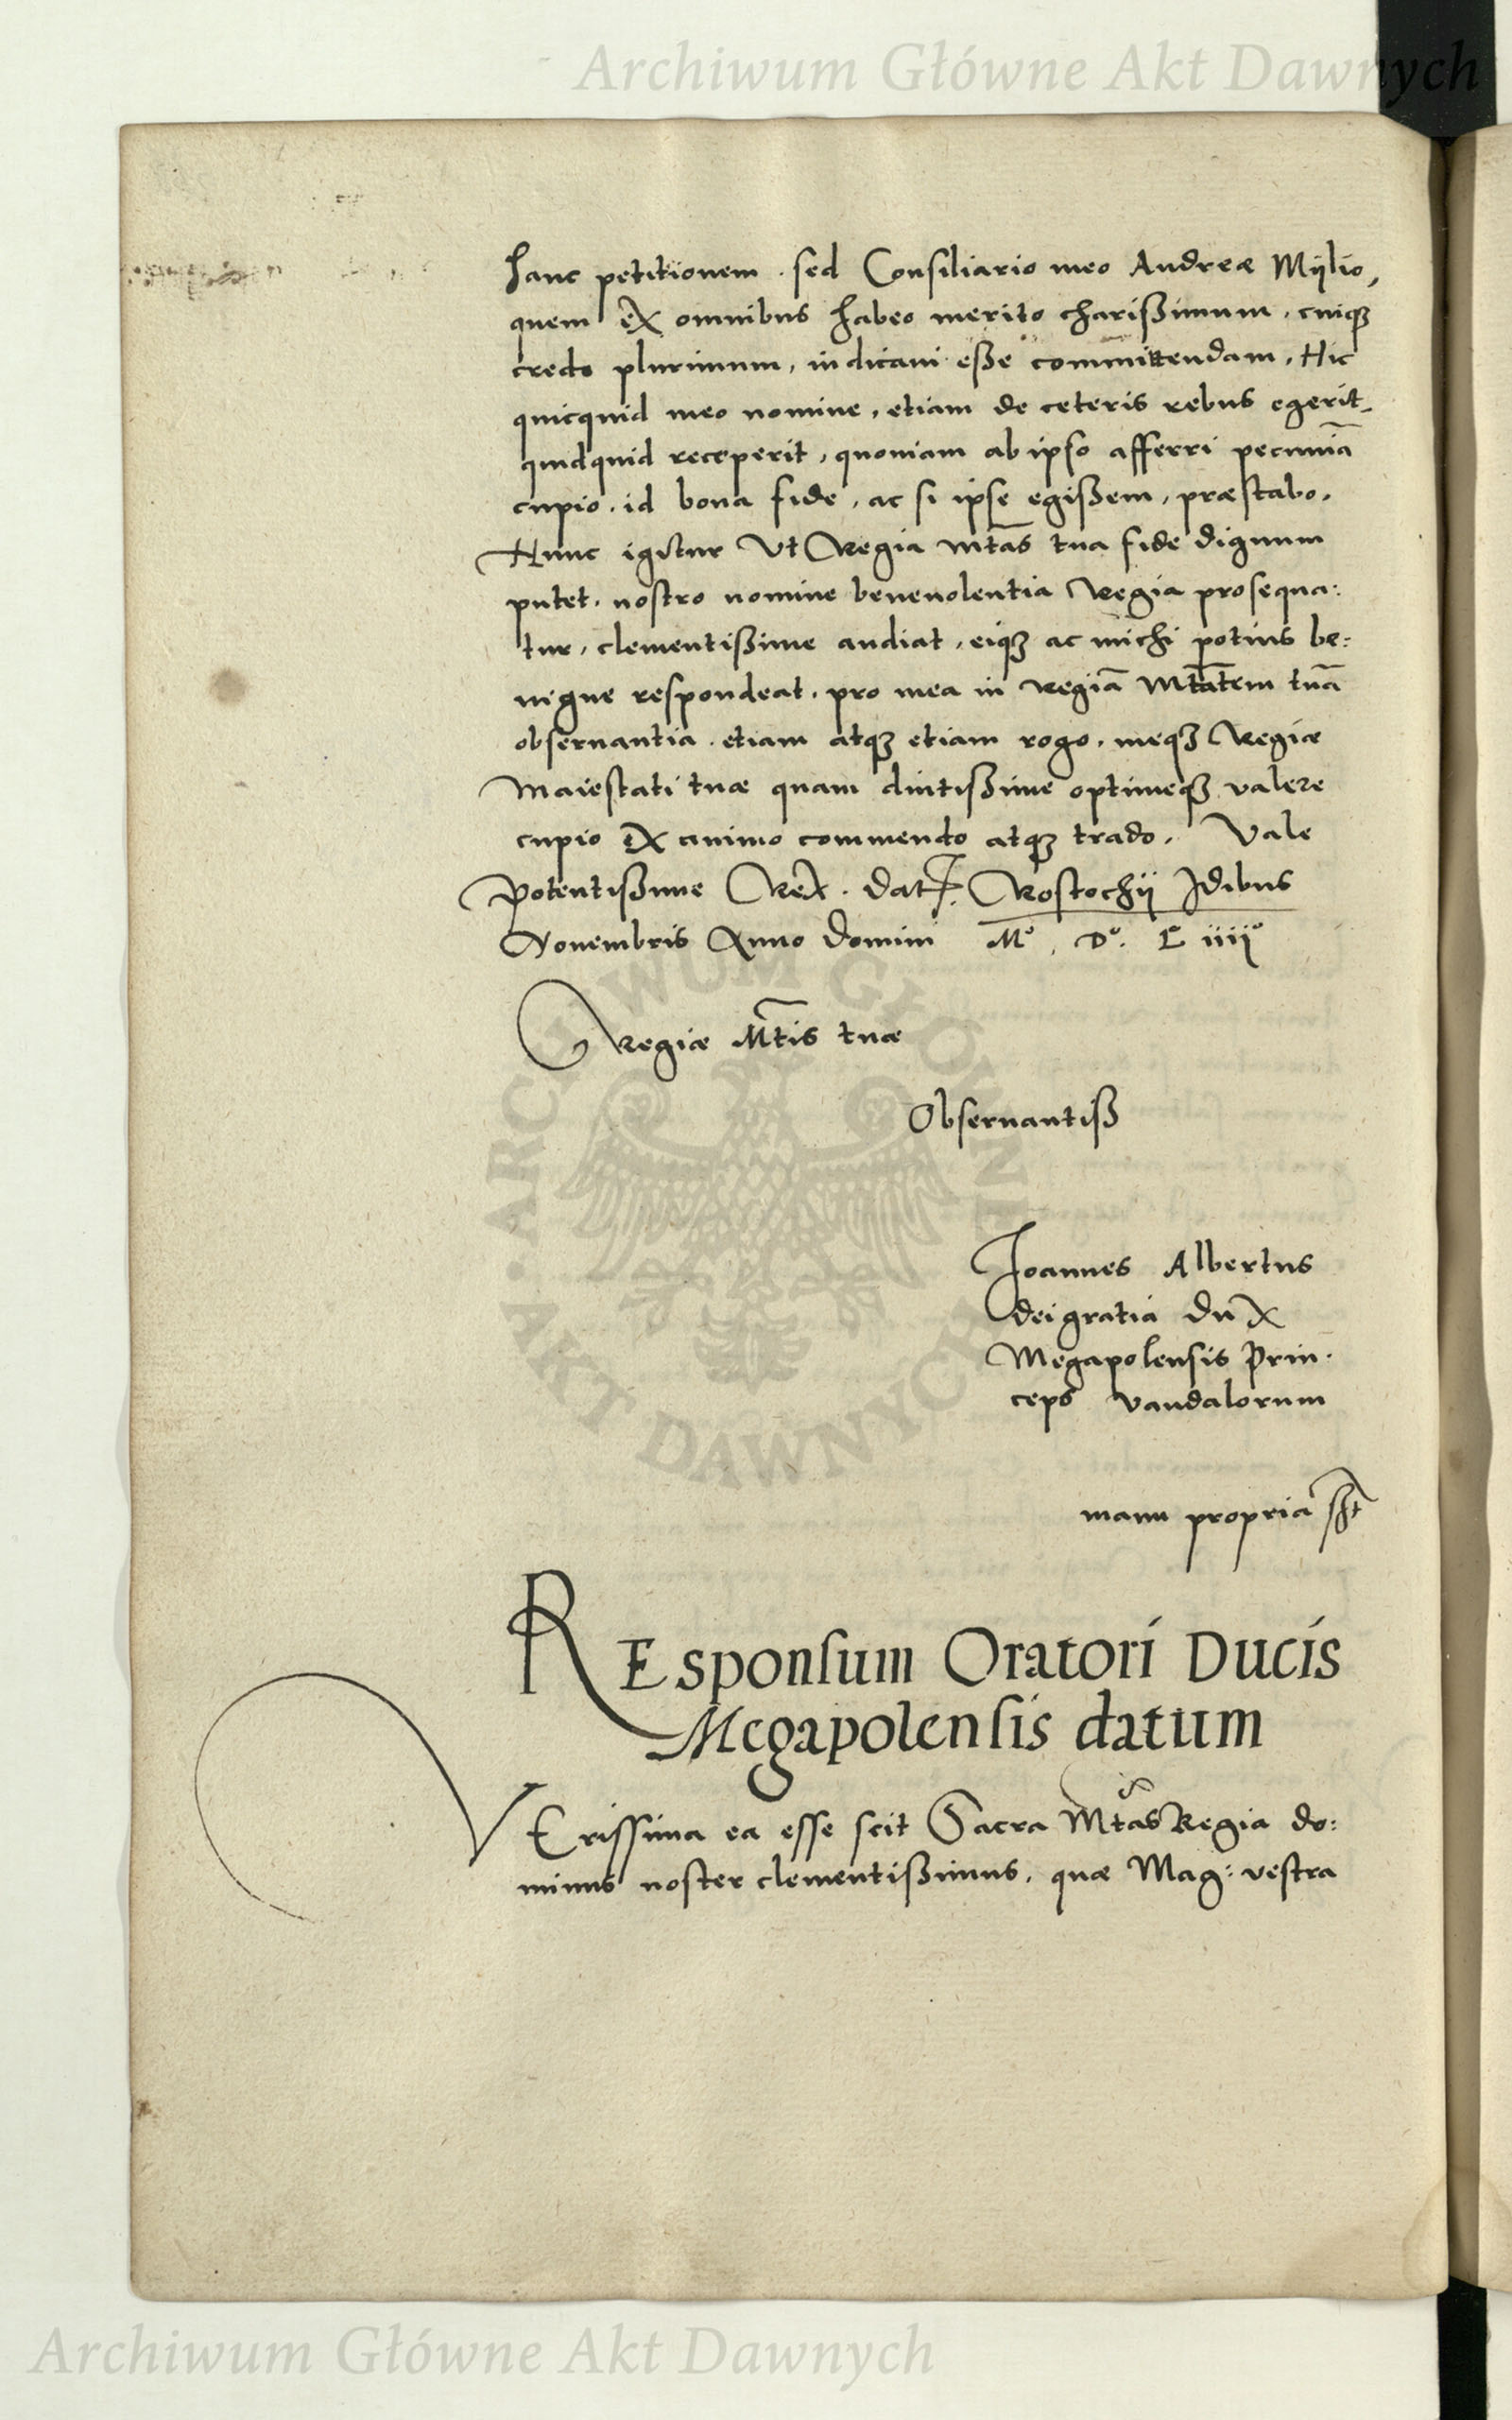 Archiwum Główne Akt Dawnych
hanc petitionem . sed Consiliario meo Andreæ Mÿlio,
quem ex omnibus habeo merito charißimum, cuiqȝ
credo plurimum, indicaui eße committendam, Hic
quicquid meo nomine, etiam de ceteris rebus egerit,
quidquid receperit, quoniam ab ipso afferri pecuniā
cupio, id bona fide, ac si ipse egißem, præstabo.
Hunc igitur Vt Regia Mtãs tua fide dignum
putet, nostro nomine beneuolentia Regia prosequa:
tur, clementißime audiat, eiqȝ ac michi potius be:
nigne respondeat, pro mea in Regiā Mtãtem tuā
obseruantia, etiam atqȝ etiam rogo, meqȝ Regiæ
Maiestati tuæ quam diutißime optimeqȝ valere
cupio ex animo commendo atqȝ trado, Vale
Potentißime Rex. datȝ. Rostochÿ Idibus
Nouembris Anno Domini Mº, Dº. Lº iiiiº
Regiæ Mt̃is tuæ
Obseruantiß
Joannes Albertus
dei gratia Dux
Megapolensis Prin.
ceps Vandalorum
manu propria sst
REsponsum Oratori Ducis
Megapolensis datum
VErissima ea esse scit Sacra Mtãs Regia do:
minus noster clementißimus, quæ Mag: vestra
ARCHIWUM GŁÓWNE · AKT DAWNYCH
Archiwum Główne Akt Dawnych